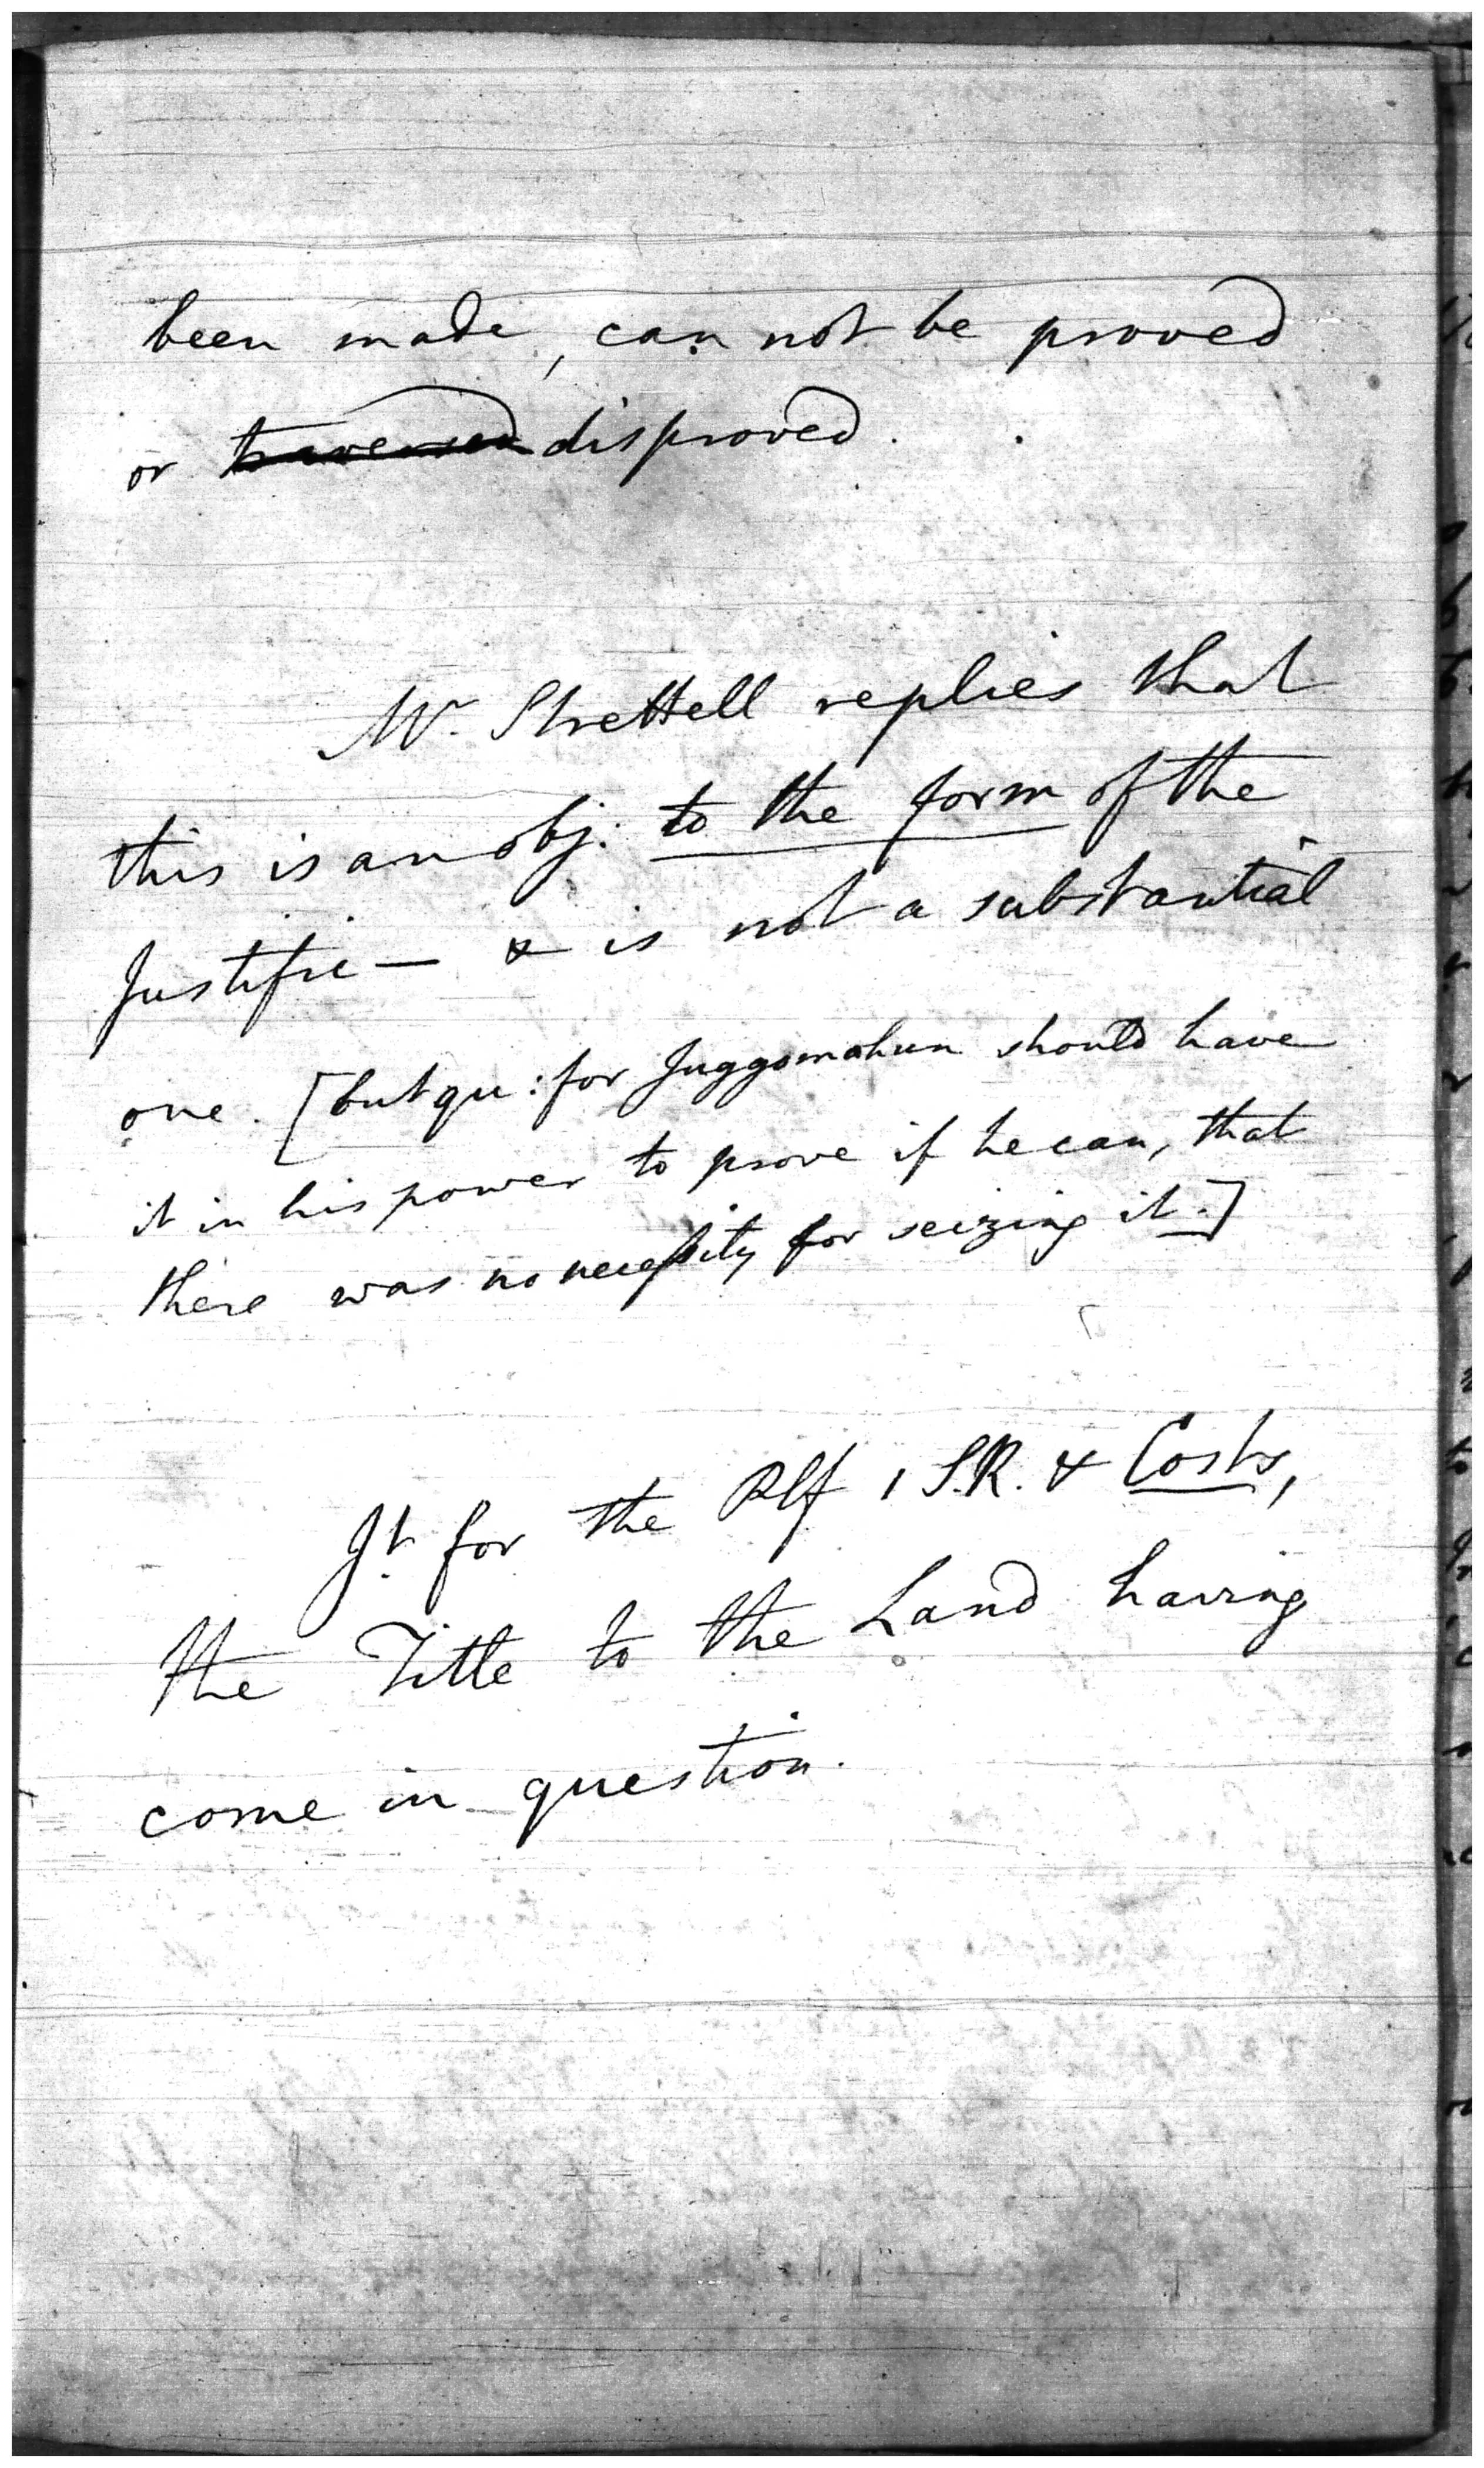 been made, can not be proved
or traversed disproved.
Mr. Strettell replies that
this is an obj: to the form of the
Justific— & is not a substantial
one. [but qu: for Juggomohun should have
it in his power to prove if he can, that
there was no necessity for seizing it.]
Jt. for the Plf 1 S.R. & Costs,
the Title to the Land having
come in question.